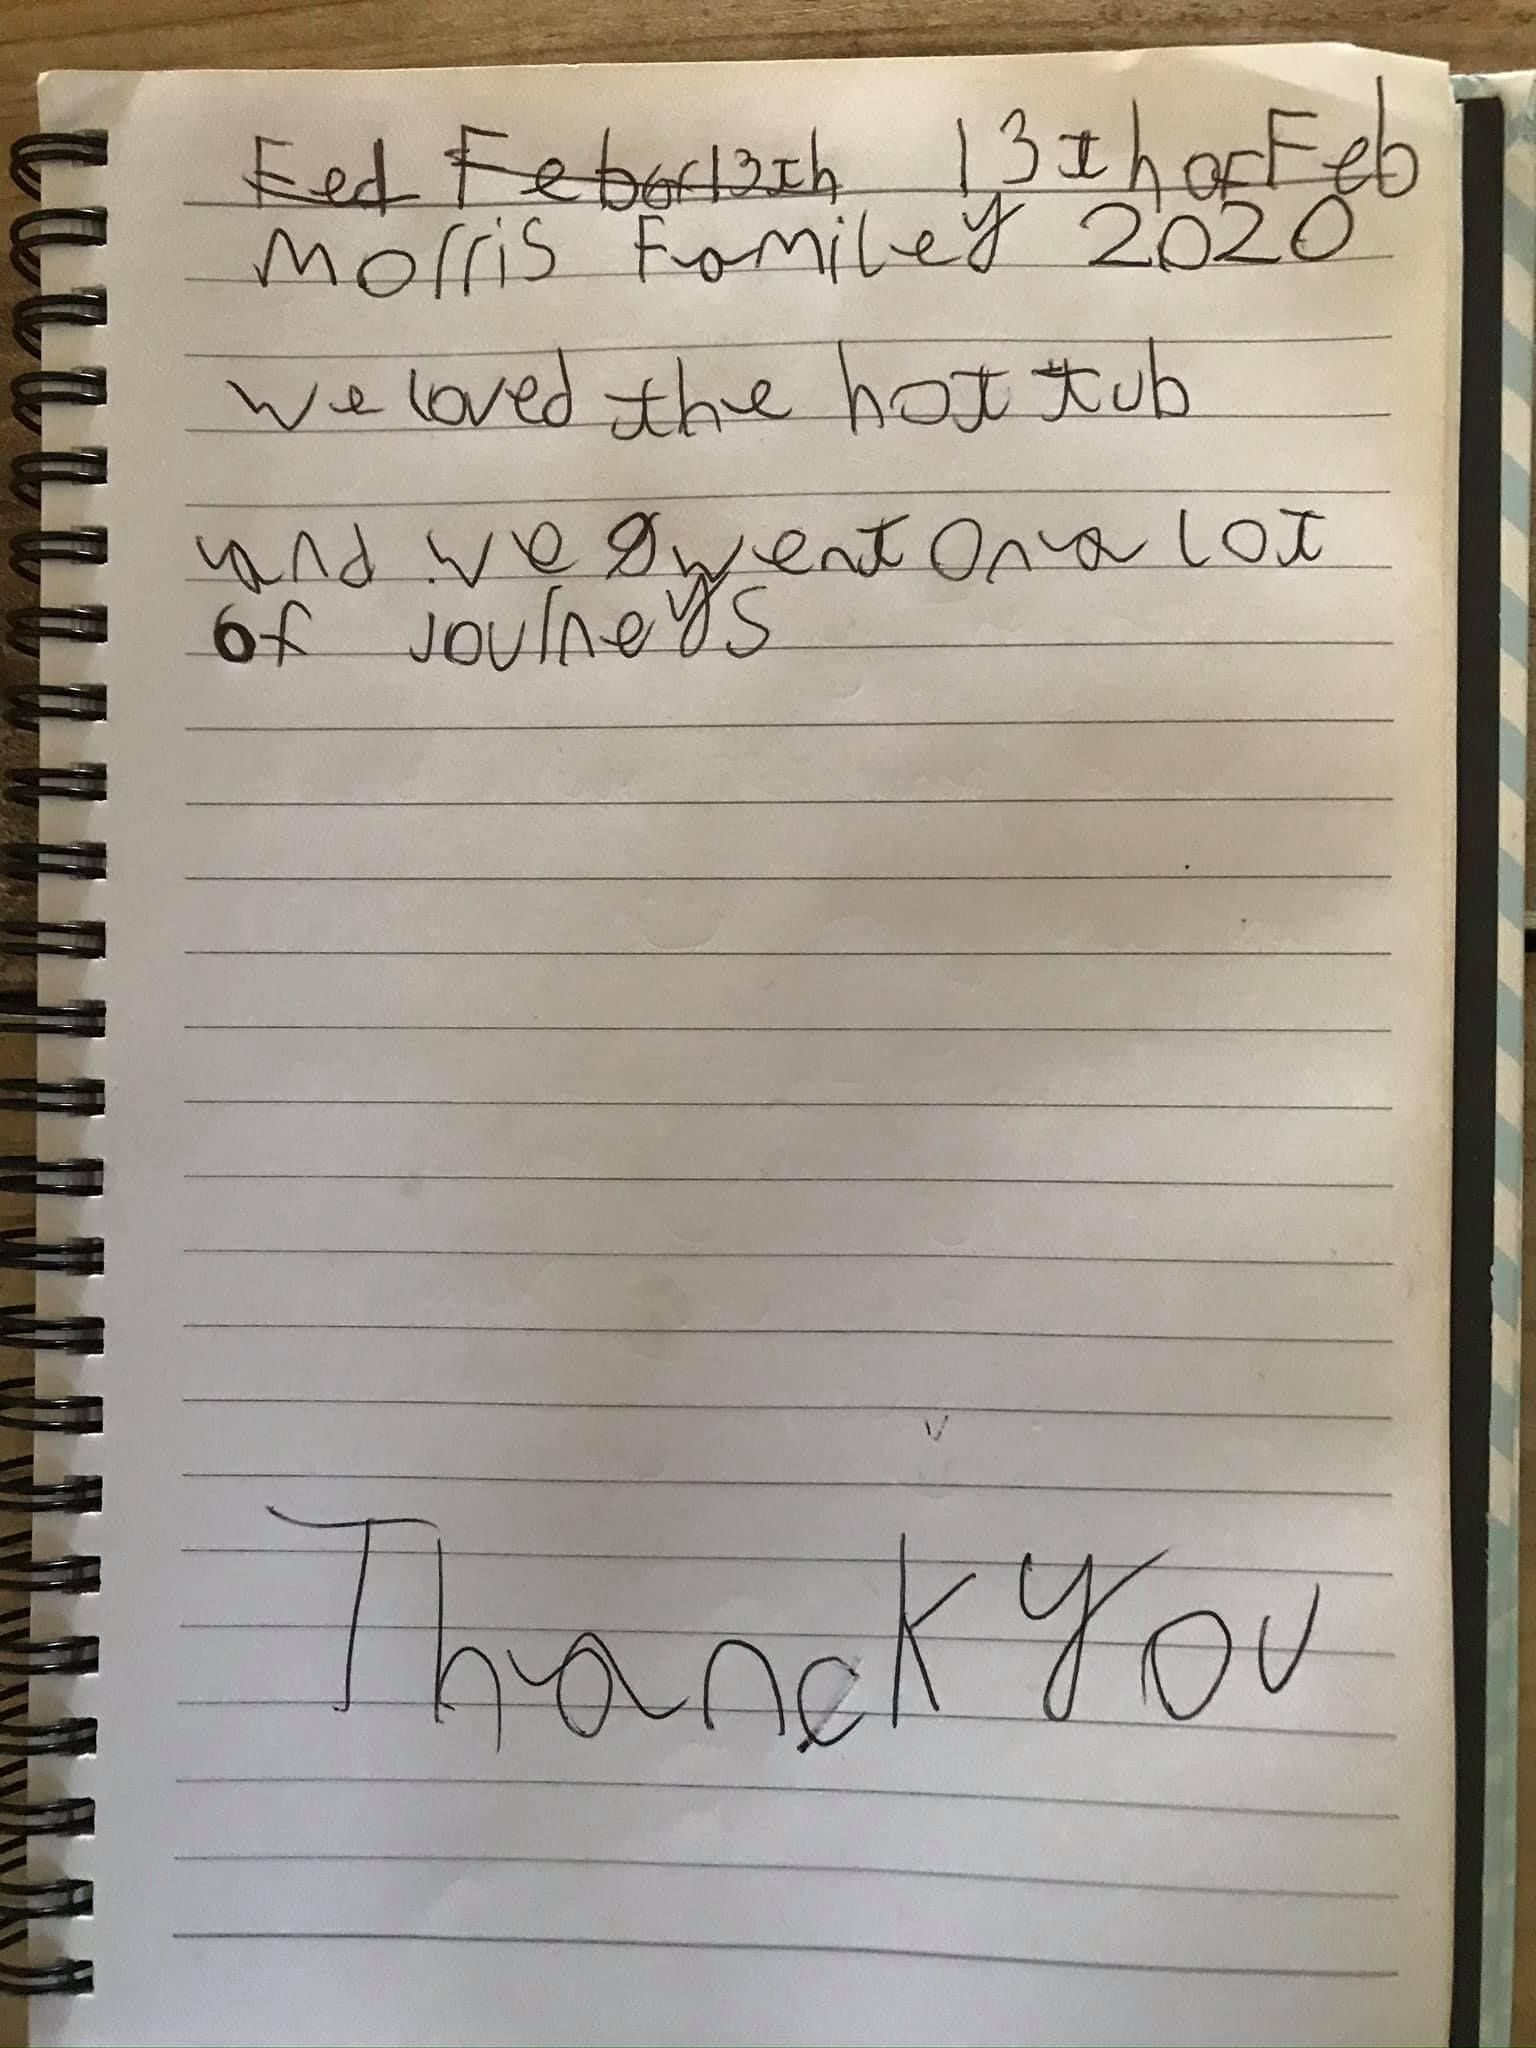 Fed Feb of 13th 13th of Feb
Morris Familey 2020
We loved the hot tub
and we went on a lot
of journeys
Thanck you